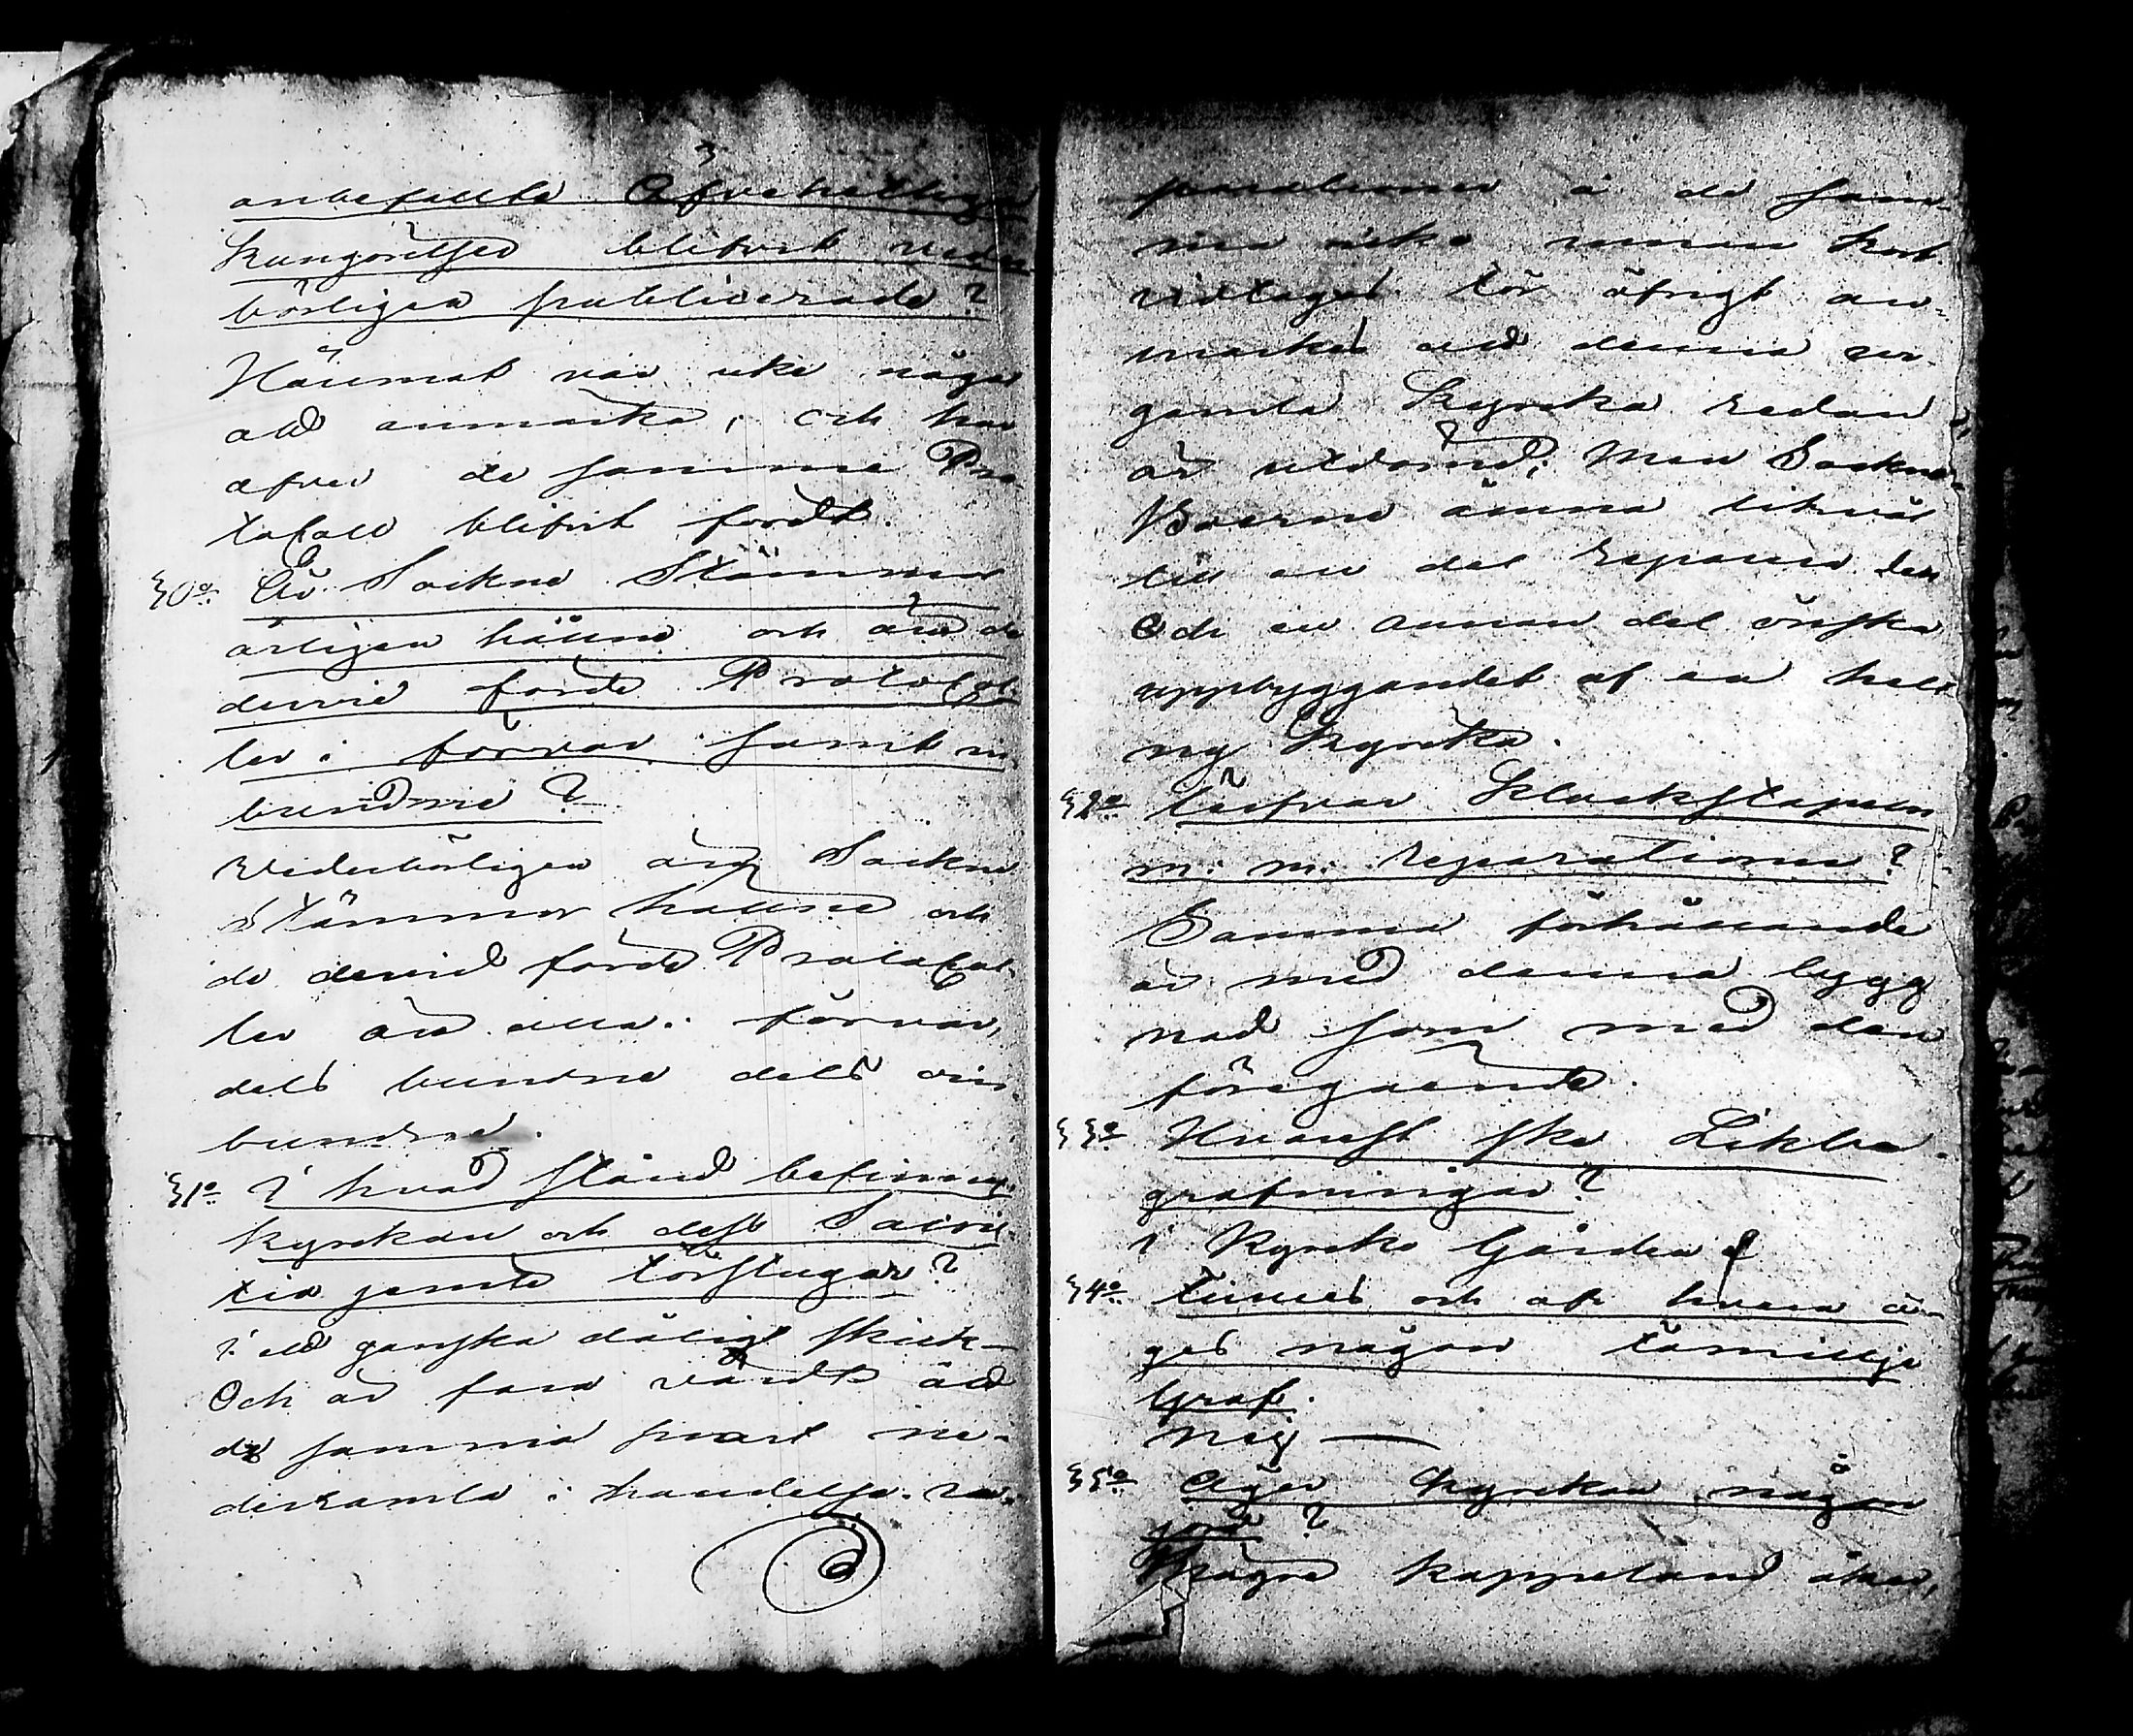 anbefallte Öfverhetliga
Kungörelser blifvit veder
börligen publicerade?
Häremot var icke något
att anmärka, och har
äfven de samma Pro
tokoll blifvit fördt.
30º Äro Sockne Stämmor
årligen hållne och äro de
dervid förde Protokol-
ler i förvar samt in-
bundne?
Vederbörligen äro Sockne
Stämmor hållne och
de dervid förde Protokol-
ler äro alla i förvar,
dels bundne dels oin
bundne.
31º I hvad stånd befinnes
kyrkan och dess Sacris-
tia jemte Förstugor?
I ett ganska dåligt skick
Och är fara värdt att
de samma snart ne-
derramla i händelse re-
parationer å de sam-
ma icke innan kort
vidtages. För öfrigt an-
märkes att denna ur-
gamla Kyrka redan
är utdömd; Men Sockne-
Boerne ämna likväl
till en del reparera den
Och en annan del önska
uppbyggandet af en hel
ny Kyrka.
32º Äfvan Klockstapeln
m: m: reparationer?
Samma förhållande
är med denna bygg
nad som med den
föregående.
33º Hvarest ske Likbe-
grafningar?
i Kyrko Gården
34º Finnes och af hvem ä-
ges någon Familije
Graf.
Nej —
35º Äger Kyrkan någon
jord?
Några kappeland åker,